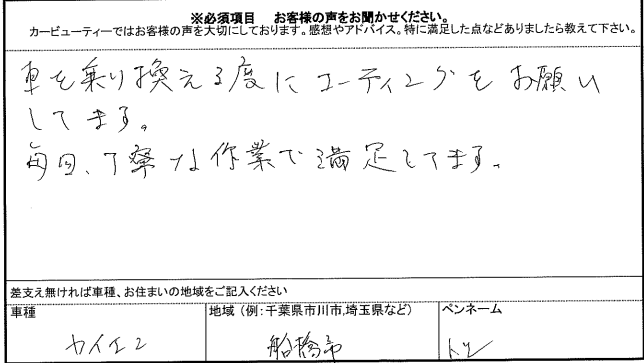 ※必須項目　お客様の声をお聞かせください。
カービューティーではお客様の声を大切にしております。感想やアドバイス。特に満足した点などありましたら教えて下さい。
車を乗り換える度にコーティングをお願い
してます。
毎回、丁寧な作業で満足してます。
差支え無ければ車種、お住まいの地域をご記入ください
車種　地域（例:千葉県市川市,埼玉県など）　ペンネーム
カイエン　船橋市　トシ